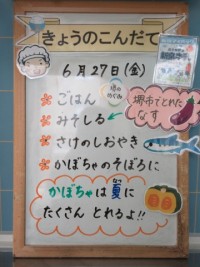 きょうのこんだて
6月27日(金)
ごはん
みそしる
堺市でとれた
なす
さけのしおやき
かぼちゃのそぼろに
かぼちゃは夏に
たくさん とれるよ!!